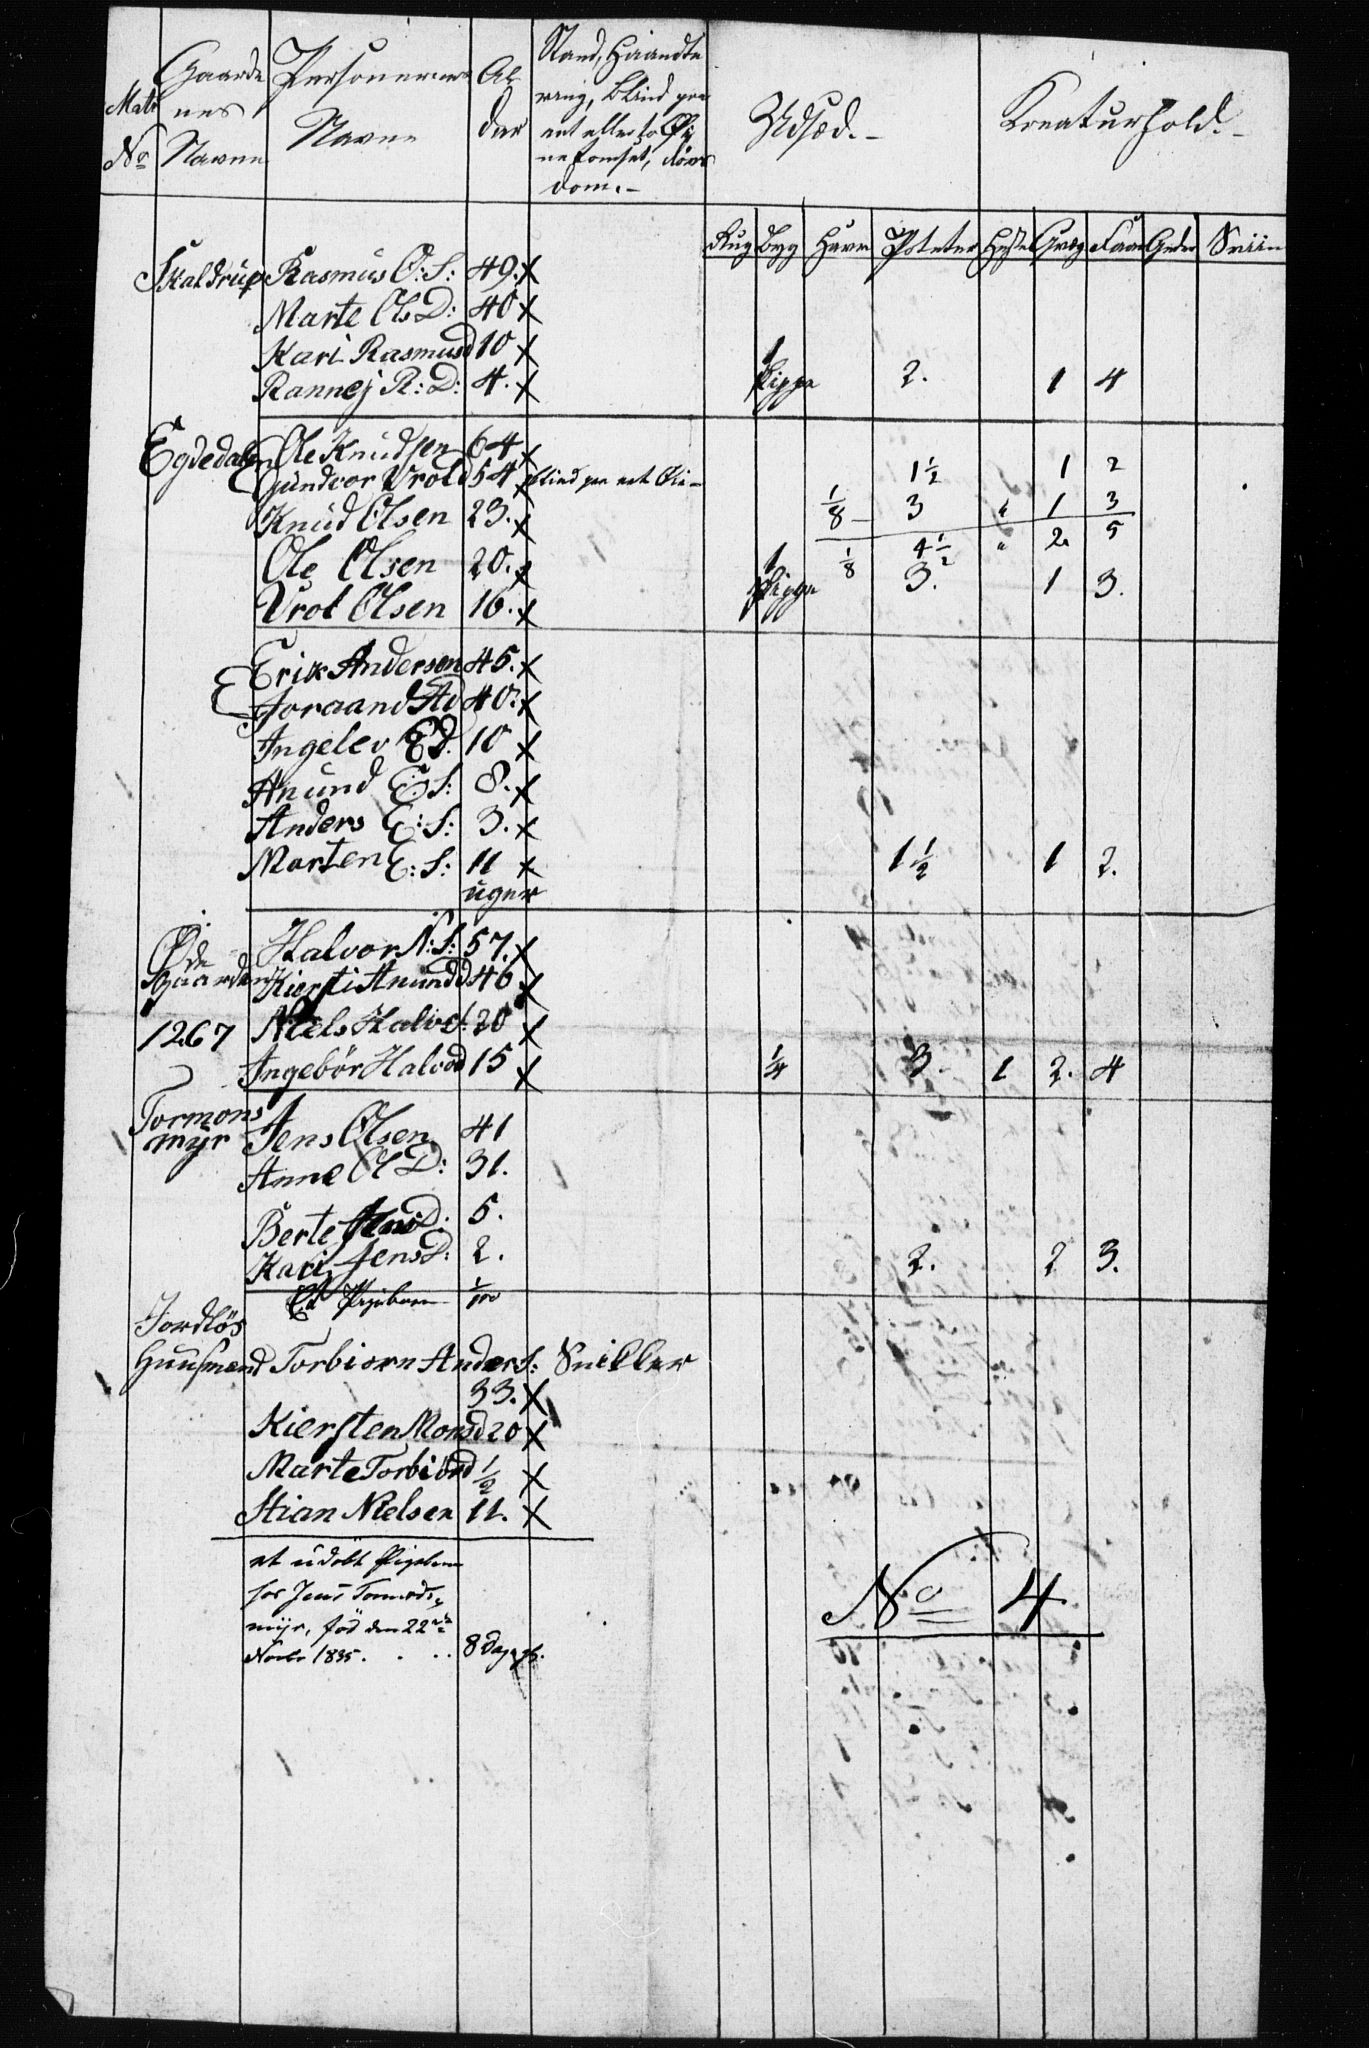 Matr No Gaarde nes Navne Personernes Navne Al der Stand, Haandte ring, blind paa eet eller to Øi ne Udsæd.- Kreaturhold.-
Rug Byg Havre Poteter Heste Faar Geder Sviin
Skaldrup Rasmus O: S: 49. x
Marte Ols D: 40 x
Kari Rasmusd 10 x
Rannej R: D: 4. x 1 Skippa 2. 1 4
Egdedalen Ole Knudsen 64 x
Gundvor Vrold 54 x blind paa eet Øie- 1½ 1 2
Knud Olsen 23. x ⅛ 3 " 1 3
⅛ 4½ " 2 5
Ole Olsen 20. x 1 Skippa 3. 1 3.
Vrol Olsen 16. x
Erik Andersen 45. x
Joraand Ad 40. x
Ingelev Ed. 10 x
Anund E: S: 8. x
Anders E: S: 3. x
Morten E: S: 11 uger x 1½ 1 2.
Øde gaarden Halvor N: S: 57. x
Kiersti Anundd 46 x
1267 Niels Halv S. 20 x
Ingebör Halvod 15 x ¼ 3. 1 2. 4
Tormons myr Jens Olsen 41
Anne Ol D: 31.
Berte Jens D: 5.
Kari Jens D: 2. 2. 2 3.
Et Pigebarn 1/100
Jordlös
Huusmend Torbiørn Anders: Snikker
33. x
Kiersten Monsd 20 x
Marte Torbiörd ½ x
Stian Nielsen 11. x
et udöbt Pigebarn
hos Jens Tormods-
myr, föd den 22de
Novbr 1835 . . . . 8 Dage gl.
No 4